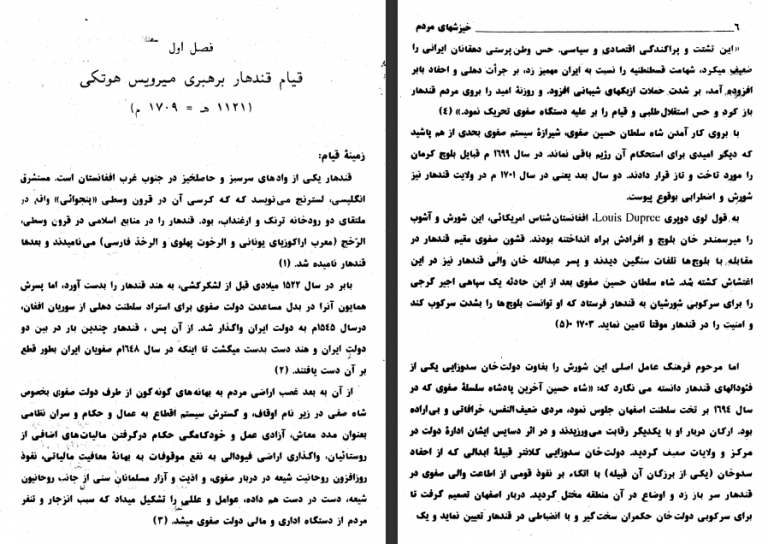 فصل اول
قیام قندهار برهبری میرویس هوتکی
(۱۱۲۱ هـ = ۱۷۰۹ م)
زمینهٔ قیام:
قندهار یکی از وادهای سرسبز و حاصلخیز در جنوب غرب افغانستان است. مستشرق
انگلیسی، لسترنج می‌نویسد که که کرسی آن در قرون وسطی «پنجوائی» واقع در
ملتقای دو رودخانه ترنک و ارغنداب، بود. قندهار را در منابع اسلامی در قرون وسطی،
الرّخج (معرب اراکوزیای یونانی و الرخوت پهلوی و الرخذ فارسی) می‌نامیدند و بعدها
قندهار نامیده شد. (۱)
بابر در سال ۱۵۲۲ میلادی قبل از لشکرکشی، به هند قندهار را بدست آورد، اما پسرش
همایون آنرا در بدل مساعدت دولت صفوی برای استراد سلطنت دهلی از سوریان افغان،
درسال ۱۵۴۵م به دولت ایران واگذار شد. از آن پس ، قندهار چندین بار در بین دو
دولت ایران و هند دست بدست میگشت تا اینکه در سال ۱۶۴۸م صفویان ایران بطور قطع
بر آن دست یافتند. (۲)
از آن به بعد غصب اراضی مردم به بهانه‌های گونه‌گون از طرف دولت صفوی بخصوص
شاه صفی در زیر نام اوقاف، و گسترش سیستم اقطاع به عمال و حکام و سران نظامی
بعنوان مدد معاش، آزادی عمل و خودکامگی حکام درگرفتن مالیات‌های اضافی از
روستائیان، واگذاری اراضی فیودالی به نفع موقوفات به بهانهٔ معافیت مالیاتی، نفوذ
روزافزون روحانیت شیعه در دربار صفوی، و اذیت و آزار مسلمانان سنی از جانب روحانیون
شیعه، دست در دست هم داده، عوامل و عللی را تشکیل میداد که سبب انزجار و تنفر
مردم از دستگاه اداری و مالی دولت صفوی میشد. (۳)
۶ خیزشهای مردم
«این تشتت و پراکندگی اقتصادی و سیاسی، حس وطن‌پرستی دهقانان ایرانی را
ضعیف میکرد، شهامت قسطنطنیه را نسبت به ایران مهمیز زد، بر جرأت دهلی و احفاد بابر
افزوده آمد، بر شدت حملات ازبکهای شیبانی افزود. و روزنهٔ امید را بروی مردم قندهار
باز کرد و حس استقلال‌طلبی و قیام را بر علیه دستگاه صفوی تحریک نمود.» (۴)
با بروی کار آمدن شاه سلطان حسین صفوی، شیرازهٔ سیستم صفوی بحدی از هم پاشید
که دیگر امیدی برای استحکام آن رژیم باقی نماند. در سال ۱۶۹۹ م قبایل بلوچ کرمان
را مورد تاخت و تاز قرار دادند. دو سال بعد یعنی در سال ۱۷۰۱ م در ولایت قندهار نیز
شورش و اضطرابی بوقوع پیوست.
به قول لوی دوپری Louis Dupree، افغانستان‌شناس امریکائی، این شورش و آشوب
را میرسمندر خان بلوچ و افرادش براه انداخته بودند. قشون صفوی مقیم قندهار در
مقابله با بلوچ‌ها تلفات سنگین دیدند و پسر عبدالله خان والی قندهار نیز در این
اغتشاش کشته شد. شاه سلطان حسین صفوی بعد از این حادثه یک سپاهی اجیر گرجی
را برای سرکوبی شورشیان به قندهار فرستاد که او توانست بلوچ‌ها را بشدت سرکوب کند
و امنیت را در قندهار موقتا تامین نماید. ۱۷۰۳ -(۵)
اما مرحوم فرهنگ عامل اصلی این شورش را بغاوت دولت‌خان سدوزایی یکی از
فئودالهای قندهار دانسته می نگارد که: «شاه حسین آخرین پادشاه سلسلهٔ صفوی که در
سال ۱۶۹۴ بر تخت سلطنت اصفهان جلوس نمود، مردی ضعیف‌النفس، خرافاتی و بی‌اراده
بود. ارکان دربار او با یکدیگر رقابت می‌ورزیدند و در اثر دسایس ایشان ادارهٔ دولت در
مرکز و ولایات ضعیف گردید. دولت‌خان سدوزایی کلانتر قبیلهٔ ابدالی که از احفاد
سدوخان (یکی از بزرگان آن قبیله) با اتکاء بر نفوذ قومی از اطاعت والی صفوی در
قندهار سر باز زد و اوضاع در آن منطقه مختل گردید. دربار اصفهان تصمیم گرفت تا
برای سرکوبی دولت‌خان حکمران سخت‌گیر و با انضباطی در قندهار تعیین نماید و یک